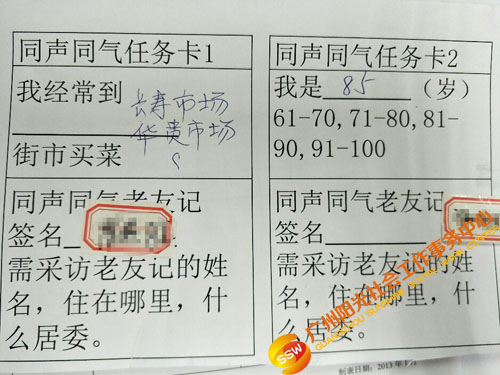 同声同气任务卡1
我经常到 长寿市场
华贵市场
街市买菜
同声同气老友记
签名
需采访老友记的姓
名，住在哪里，什
么居委。
同声同气任务卡2
我是 85 （岁）
61-70,71-80,81-
90,91-100
同声同气老友记
签名
需采访老友记的姓
名，住在哪里，什
么居委。
制表日期：2013年
SSW
广州阳光社会工作事务中心